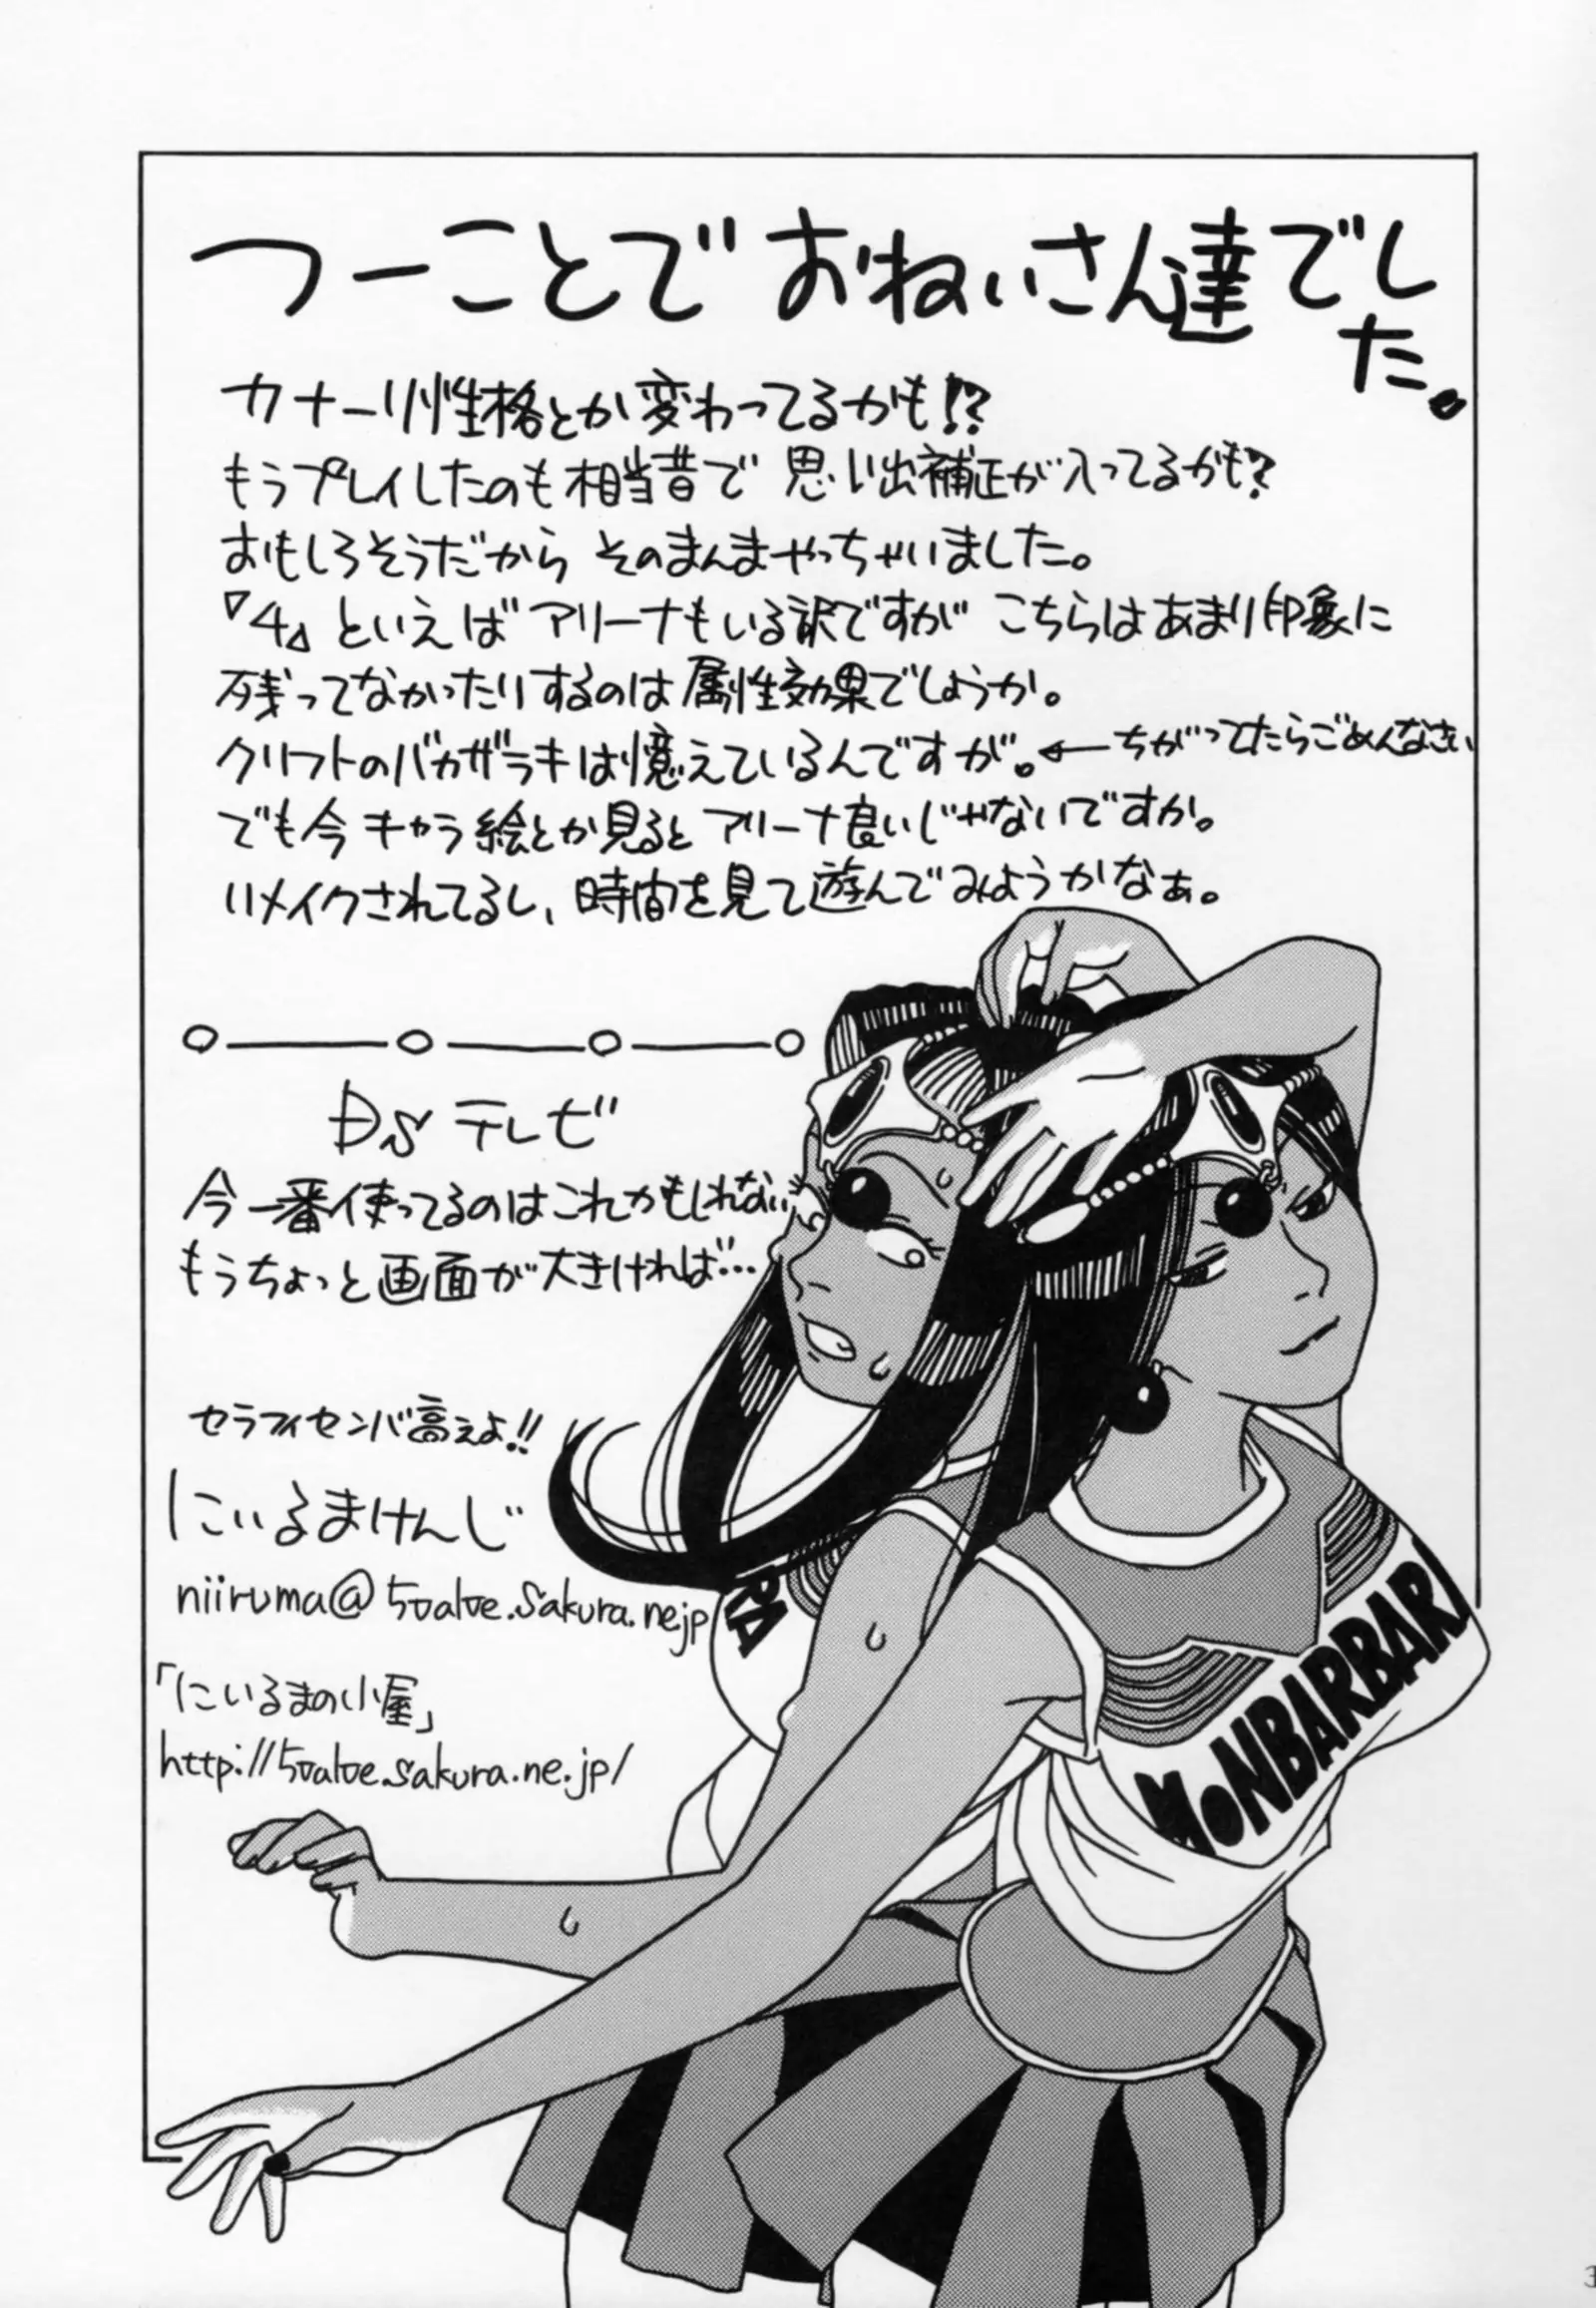 つーことでおねぃさん達でし
た。
カナーリ性格とか変わってるかも!?
もうプレイしたのも相当昔で 思い出補正が入ってるかも?
おもしろそうだから そのまんまやっちゃいました。
『4』といえば アリーナもいる訳ですが こちらはあまり印象に
残ってなかったりするのは属性効果でしょうか。
クリフトのバカザラキは憶えているんですが。←ちがってたらごめんなさい
でも今キャラ絵とか見るとアリーナ良いじゃないですか。
リメイクされてるし、時間を見て遊んでみようかなぁ。
DSテレビ
今一番使ってるのはこれかもしれない
もうちょっと画面が大きければ…
セラフィセンバ高えよ!!
にいるまけんじ
niiruma@5valve.sakura.ne.jp
「にいるまの小屋」
http://5valve.sakura.ne.jp/
MONBARBARA